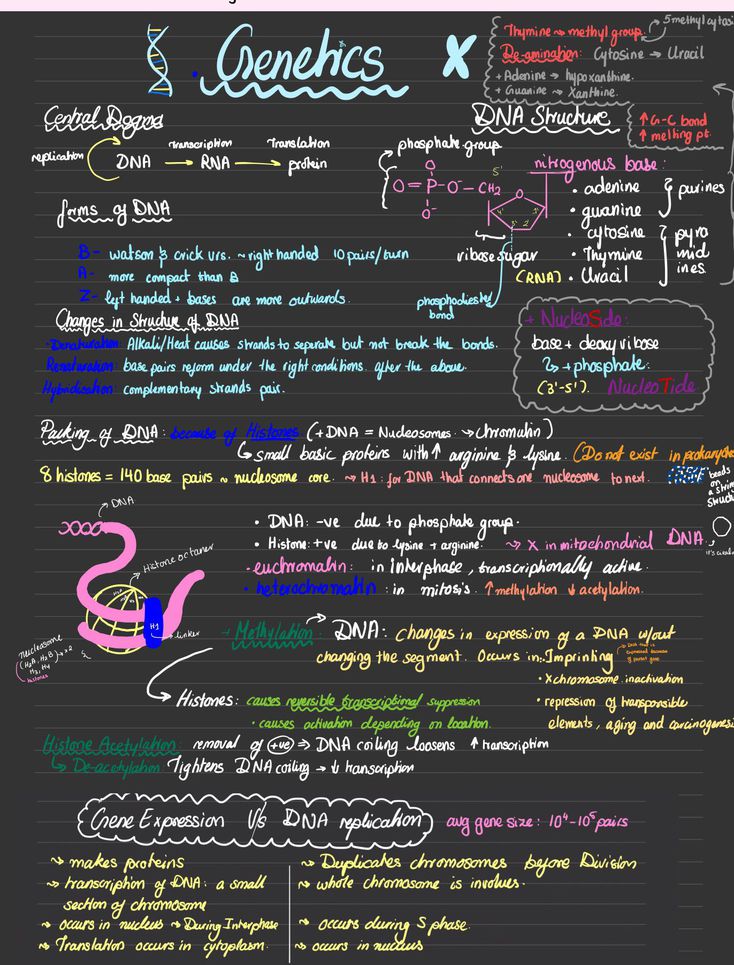 Genetics
Thymine → methyl group.
De-amination: Cytosine → Uracil
+ Adenine → hypoxanthine.
+ Guanine → Xanthine.
Central Dogma
replication
DNA → RNA → protein
Transcription
Translation
DNA Structure
↑ G-C bond
↑ melting pt.
phosphate group
O
O = P - O - CH2
O-
5'
O
4'
1'
3'
2'
ribose sugar
phosphodiester
bond
nitrogenous base:
• adenine
• guanine
purines
• cytosine
• Thymine
(RNA) • Uracil
pyro
mid
ines
forms of DNA
B - watson & crick vrs. ~ right handed 10 pairs/turn
A - more compact than B
Z - left handed + bases are more outwards.
Changes in Structure of DNA
• Denaturation: Alkali/Heat causes strands to separate but not break the bonds.
Renaturation: base pairs reform under the right conditions. after the above.
Hybridisation: complementary strands pair.
+ NucleoSide:
base + deoxyribose
+ phosphate:
(3'-5'). NucleoTide
Packing of DNA: because of Histones (+DNA = Nucleosomes → chromatin)
small basic proteins with ↑ arginine & lysine. (Do not exist in prokaryote
8 histones = 140 base pairs ~ nucleosome core. → H1: for DNA that connects one nucleosome to next.
beads
on
a strin
struct
DNA
Histone octamer
H1
linker
nucleosome
(H2A, H2B) x 2
H3, H4
histones
• DNA: -ve due to phosphate group.
• Histone: +ve due to lysine + arginine. → X in mitochondrial DNA.
• euchromatin: in interphase, transcriptionally active.
• heterochromatin: in mitosis. ↑ methylation ↓ acetylation.
+ Methylation: → DNA: changes in expression of a DNA w/out
changing the segment. Occurs in: Imprinting
• X chromosome inactivation
• repression of transposible
elements, aging and carcinogenesi
Histones: causes reversible transcriptional suppression
• causes activation depending on location.
Histone Acetylation: removal of +ve ⇒ DNA coiling loosens ↑ transcription
De-acetylation: Tightens DNA coiling → ↓ transcription
Gene Expression V/s DNA replication
avg gene size: 10⁴-10⁵ pairs
→ makes proteins
→ transcription of DNA: a small
section of chromosome
→ occurs in nucleus → During Interphase
→ Translation occurs in cytoplasm.
→ Duplicates chromosomes before Division
→ whole chromosome is involves.
→ occurs during S phase.
→ occurs in nucleus